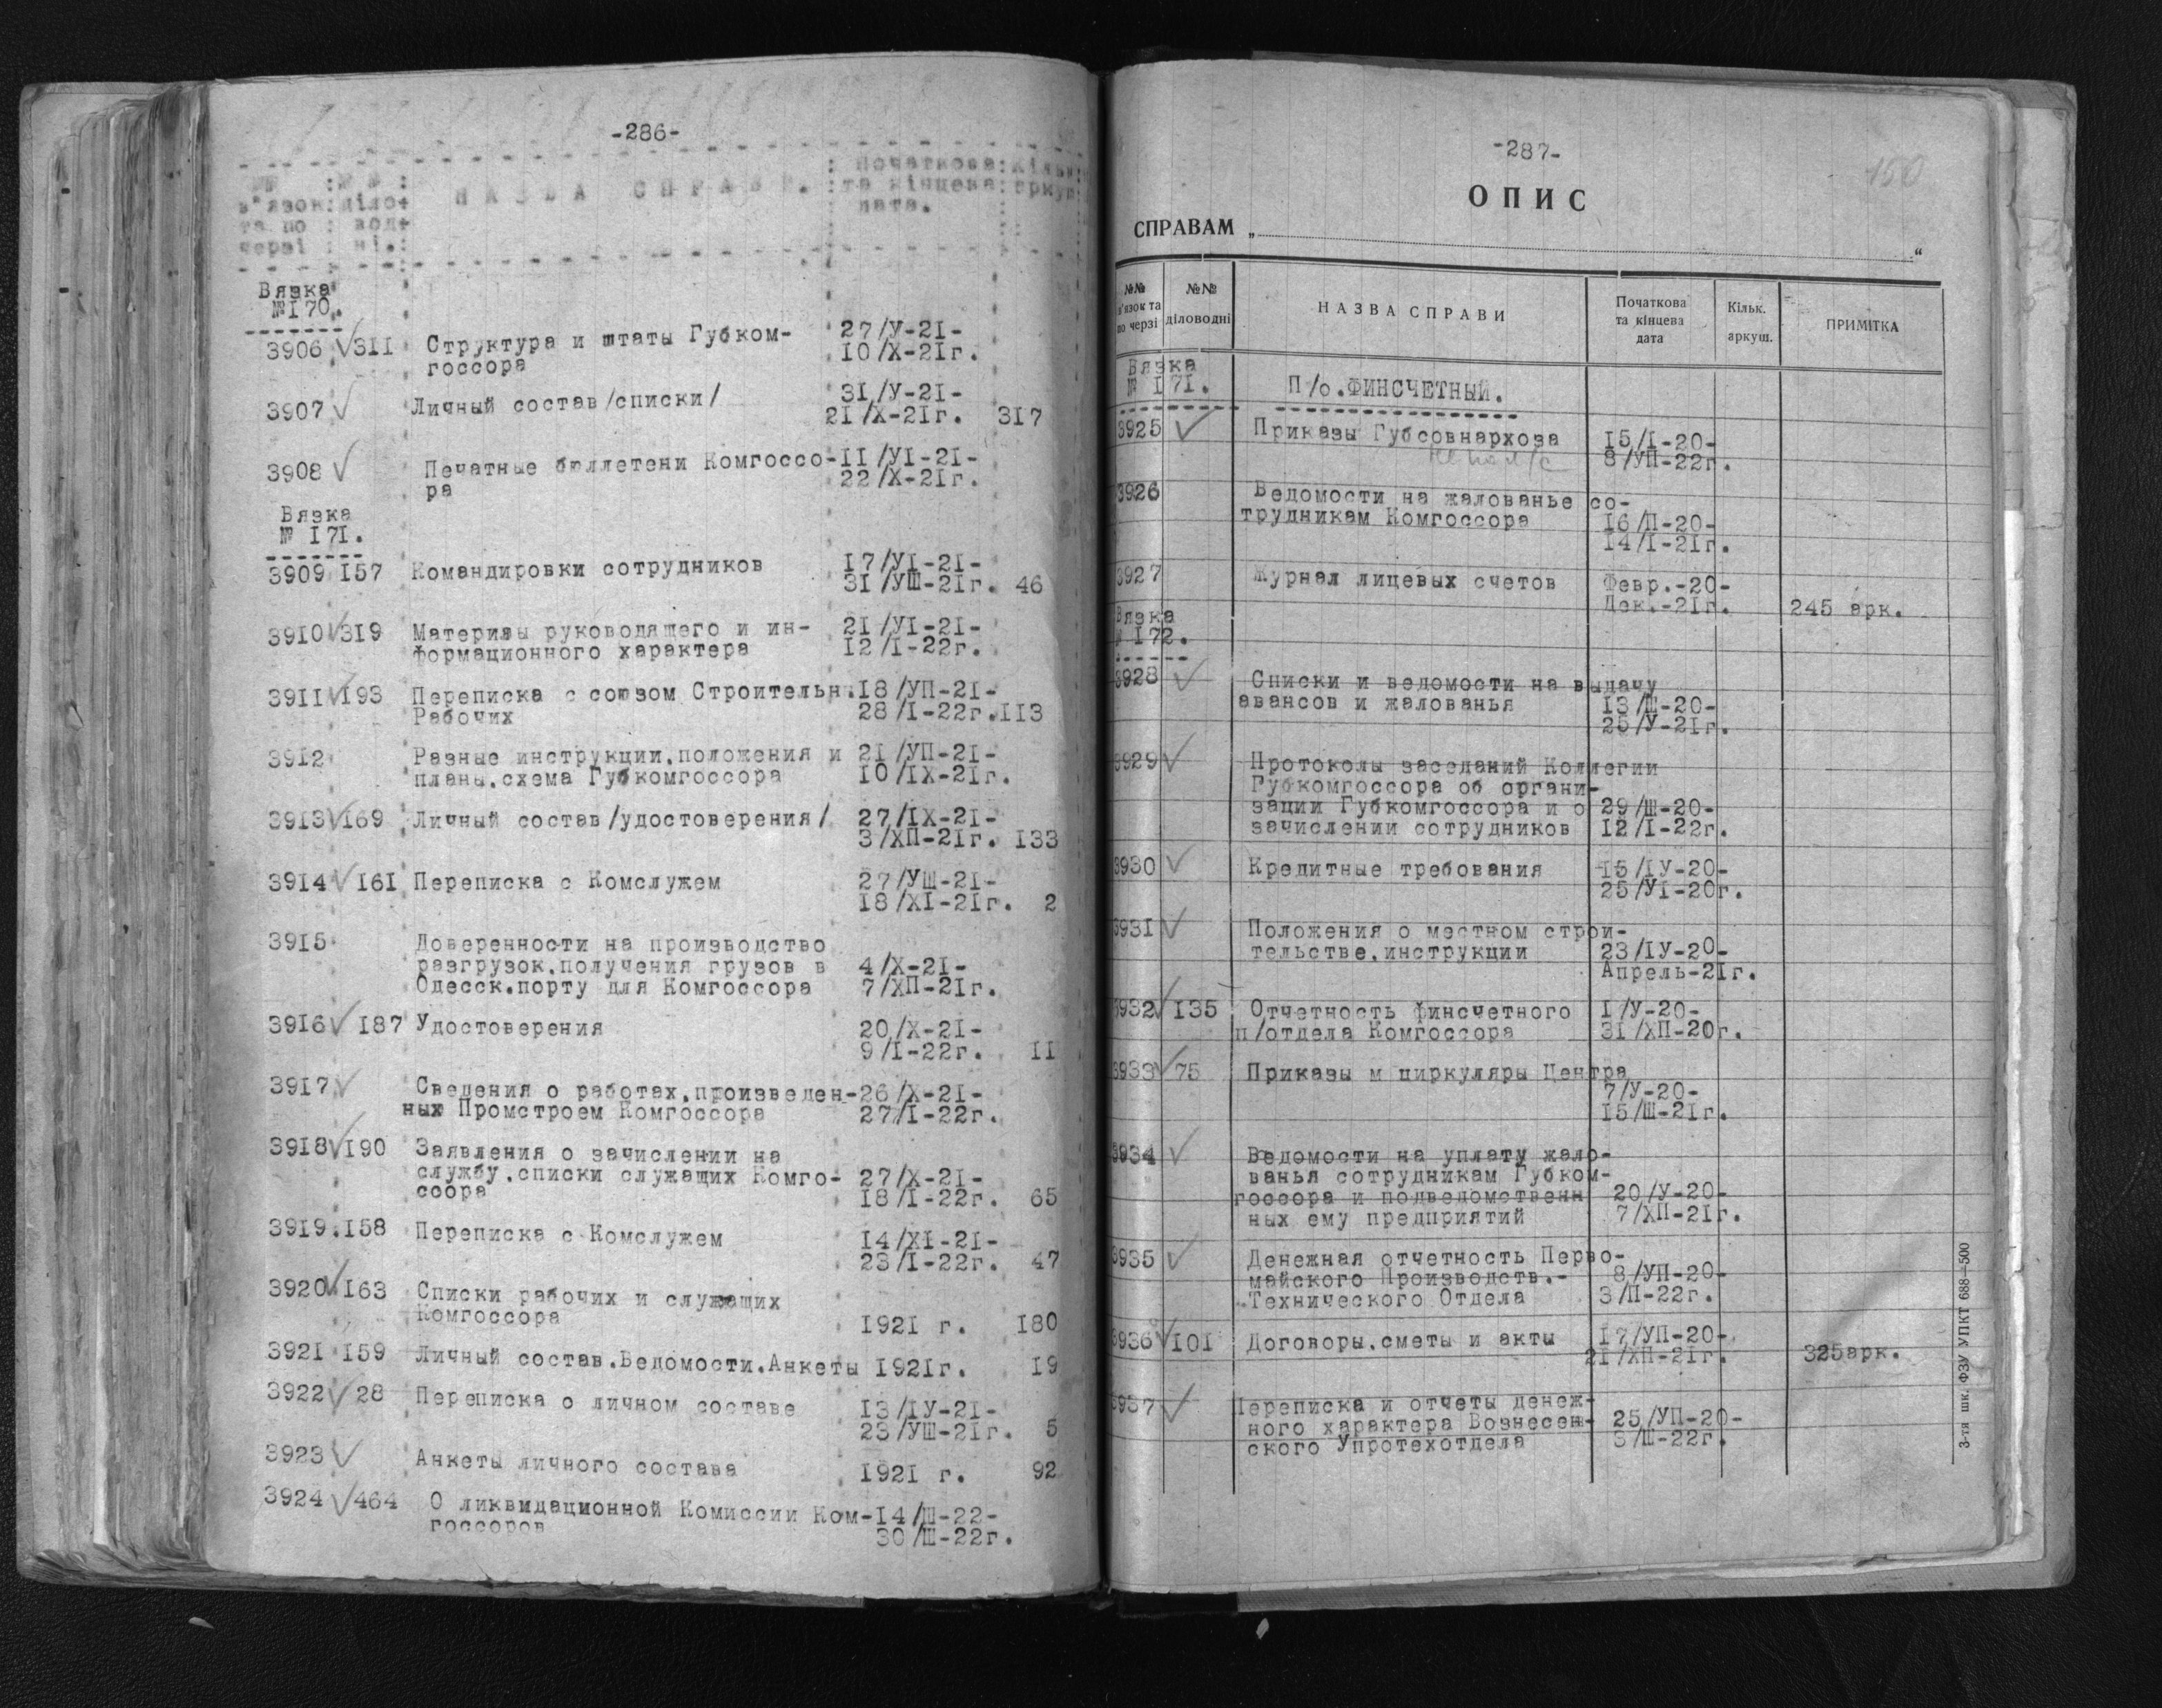 -286-
№№ : №№ : НАЗВА СПРАВИ. : Початкова: Кільк.
в"язок: діло- : та кінцева: аркуш
та по : вод- : дата.
черзі : ні. :
Вязка
№ I70.
3906 √ 3II Структура и штаты Губком- 27/У-2I-
госсора I0/Х-2Iг.
3907 √ Личный состав/списки/ 3I/У-2I-
2I/Х-2Iг. 3I7
3908 √ Печатные бюллетени Комгоссо- II/УI-2I-
ра 22/Х-2Iг.
Вязка
№ I7I.
3909 I57 Командировки сотрудников I7/УI-2I-
3I/УШ-2Iг. 46
39I0 √ 3I9 Материлы руководящего и ин- 2I/УI-2I-
формационного характера I2/I-22г.
39II √ I93 Переписка с союзом Строительн. I8/УП-2I-
Рабочих 28/I-22г. II3
39I2 Разные инструкции,положения и 2I/УП-2I-
планы,схема Губкомгоссора I0/IХ-2Iг.
39I3 √ I69 Личный состав/удостоверения/ 27/IХ-2I-
3/ХП-2Iг. I33
39I4 √ I6I Переписка с Комслужем 27/УШ-2I-
I8/ХI-2Iг. 2
39I5 Доверенности на производство
разгрузок,получения грузов в 4/Х-2I-
Одесск.порту для Комгоссора 7/ХП-2Iг.
39I6 √ I87 Удостоверения 20/Х-2I-
9/I-22г. II
39I7 √ Сведения о работах,произведен- 26/Х-2I-
ных Промстроем Комгоссора 27/I-22г.
39I8 √ I90 Заявления о зачислении на
службу,списки служащих Комго- 27/Х-2I-
ссора I8/I-22г. 65
39I9 I58 Переписка с Комслужем I4/ХI-2I-
23/I-22г. 47
3920 √ I63 Списки рабочих и служащих
Комгоссора I92I г. I80
392I I59 Личный состав.Ведомости.Анкеты I92Iг. I9
3922 √ 28 Переписка о личном составе I3/IУ-2I-
23/УШ-2Iг. 5
3923 √ Анкеты личного состава I92I г. 92
3924 √ 464 О ликвидационной Комиссии Ком- I4/Ш-22-
госсоров 30/Ш-22г.
-287-
150
ОПИС
СПРАВАМ „ “
№№ в'язок та по черзі
№№ діловодні
НАЗВА СПРАВИ
Початкова та кінцева дата
Кільк. аркуш.
ПРИМІТКА
Вязка
№ I7I. П/о.ФИНСЧЕТНЫЙ.
3925 √ Приказы Губсовнархоза I5/I-20-
8/УП-22г.
3926 Ведомости на жалованье со-
трудникам Комгоссора I6/П-20-
I4/I-2Iг.
3927 Журнал лицевых счетов Февр.-20-
Дек.-2Iг. 245 арк.
Вязка
№ I72.
3928 √ Списки и ведомости на выдачу
авансов и жалованья I3/Ш-20-
25/У-2Iг.
3929 √ Протоколы заседаний Коллегии
Губкомгоссора об органи-
зации Губкомгоссора и о 29/Ш-20-
зачислении сотрудников I2/I-22г.
3930 √ Кредитные требования I5/IУ-20-
25/УI-20г.
393I √ Положения о местном строи-
тельстве,инструкции 23/IУ-20-
Апрель-2Iг.
3932 √ I35 Отчетность финсчетного I/У-20-
п/отдела Комгоссора 3I/ХП-20г.
3933 √ 75 Приказы м циркуляры Центра
7/У-20-
I5/Ш-2Iг.
3934 √ Ведомости на уплату жало-
ванья сотрудникам Губком-
госсора и подведомственн 20/У-20-
ных ему предприятий 7/ХП-2Iг.
3935 √ Денежная отчетность Перво-
майского Производств.- 8/УП-20-
Технического Отдела 3/П-22г.
3936 √ I0I Договоры,сметы и акты I7/УП-20-
2I/ХП-2Iг. 325арк.
3937 √ Переписка и отчеты денеж-
ного характера Вознесен- 25/УП-20-
ского Упротехотдела 3/Ш-22г.
3-тя шк. ФЗУ УПКТ 688—500